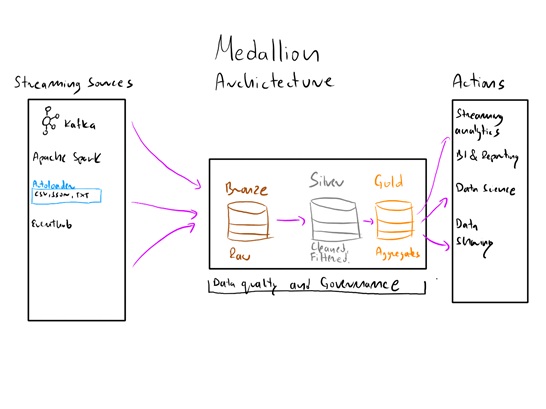 Medallion
Archictecture
Streaming Sources
Kafka
Apache Spark
Autoloader
CSV, JSON, TXT
Eventhub
Bronze
Raw
Silver
Cleaned,
Filtered.
Guld
Aggregates
Data quality and Governance
Actions
Streaming
analytics
BI & Reporting
Data Science
Data
Sharing